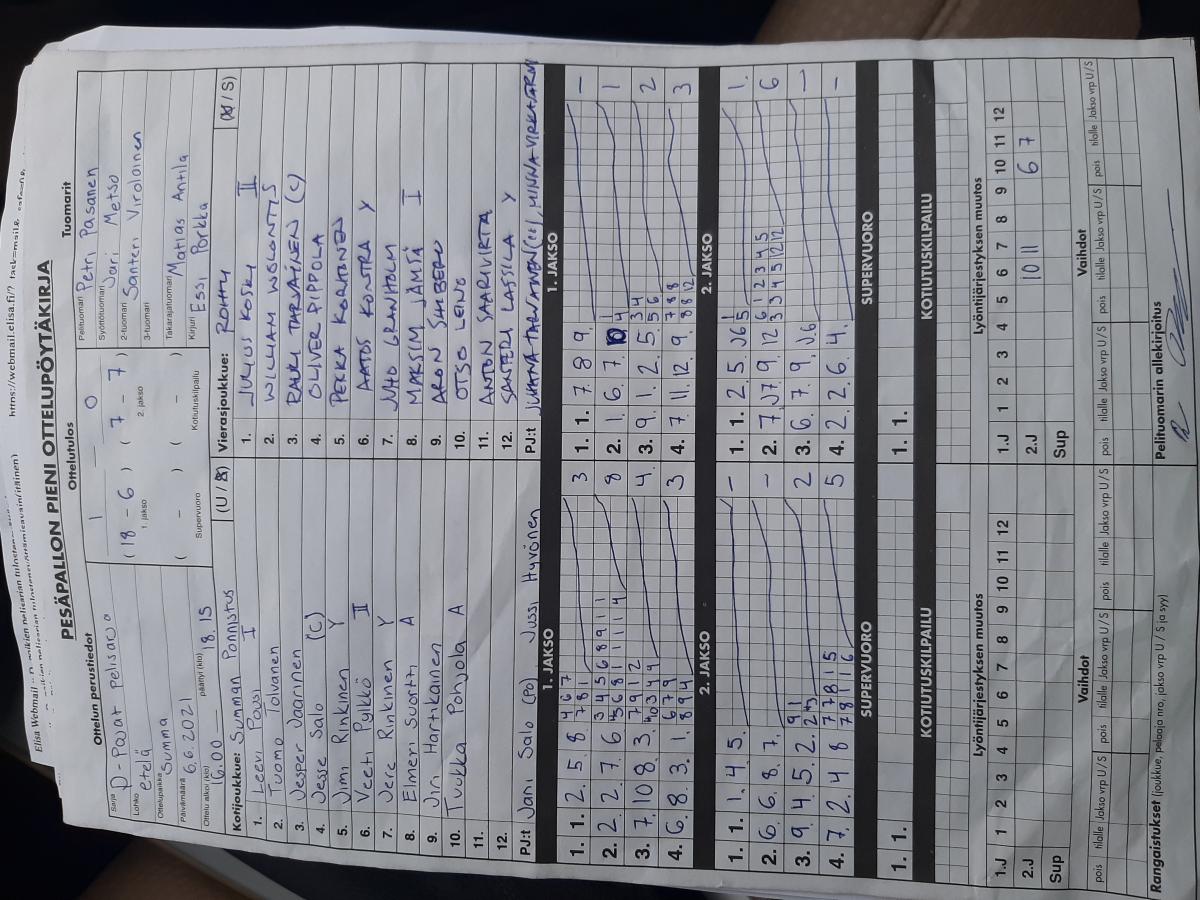 PESÄPALLON PIENI OTTELUPÖYTÄKIRJA
Ottelun perustiedot
Ottelutulos
Tuomarit
Sarja D-Pojat Pelisarja
Lohko etelä
Ottelupaikka Summa
Päivämäärä 6.6.2021
Ottelu alkoi (klo) 16.00 päättyi (klo) 18.15
1 – 0
(18 - 6) (7 - 7)
1. jakso 2. jakso
( - ) ( - )
Supervuoro Kotiutuskilpailu
Pelituomari Petri Pasanen
Syöttötuomari Jari Metso
2-tuomari Santeri Virolainen
3-tuomari
Takarajatuomari Matias Antila
Kirjuri Essi Porkka
Kotijoukkue: Summan Ponnistus (U / S)
1. Leevi Pousi I
2. Tuomo Tolvanen
3. Jesper Jaarinen
4. Jesse Salo (C)
5. Jimi Rinkinen Y
6. Veeti Pylkkö II
7. Jere Rinkinen Y
8. Elmeri Suortti A
9. Jiri Hartikainen
10. Tuukka Pohjola A
11.
12.
PJ:t Jani Salo (PJ) Jussi Hyvönen
Vierasjoukkue: ROIHU (U / S)
1. JULIUS KOSKI II
2. WILLIAM WESLONTIS
3. RAULI TARVAINEN (C)
4. OLIVER PIPPOLA
5. PEKKA KORHONEN
6. AATOS KONTRA Y
7. JUHO GRANHOLM
8. MAKSIM JÄMSÄ I
9. ARON
10. OTSO LEINO
11. ANTON SAARIVIRTA
12. SANTERI LASSILA Y
PJ:t JUHANA TARVAINEN MINNA VIRKAJÄRVI
1. JAKSO
1. 1. 2. 5. 8 4 6 7 3
7 8 1
2. 2. 2. 7. 6. 3 4 5 6 8 9 1 1 8
3. 7. 10 8 3. 7 9 1 2 4.
4. 6. 8. 3. 1. 6 7 9 3
8 9 4
1. JAKSO
1. 1. 7. 8 9. –
2. 1. 6. 7. 1
4
3. 9. 1. 2. 5. 3 4 2
5 6
4. 7. 11. 12. 9. 7 8 8 3
8 8 12
2. JAKSO
1. 1. 1. 4. 5. –
2. 6. 6. 8. 7. –
3. 9. 4. 5. 2. 9 1 2
4. 7. 2. 4 8 7 7 8 1 5 5
7 8 1 1 6
2. JAKSO
1. 1. 2 5. 1 1.
5
2. 7. 9. 12 6 1 2 3 4 5 6
3 3 4 5 12 12
3. 6. 7. 9. –
4. 2. 2. 6. 4. –
SUPERVUORO
1. 1.
SUPERVUORO
1. 1.
KOTIUTUSKILPAILU
KOTIUTUSKILPAILU
Lyöntijärjestyksen muutos
1.J 1 2 3 4 5 6 7 8 9 10 11 12
2.J
Sup
Lyöntijärjestyksen muutos
1.J 1 2 3 4 5 6 7 8 9 10 11 12
2.J 10 11 6 7
Sup
Vaihdot
pois tilalle Jakso vrp U/S pois tilalle Jakso vrp U/S pois tilalle Jakso vrp U/S
Vaihdot
pois tilalle Jakso vrp U/S pois tilalle Jakso vrp U/S pois tilalle Jakso vrp U/S
Rangaistukset (joukkue, pelaaja nro, jakso vrp U / S ja syy)
Pelituomarin allekirjoitus